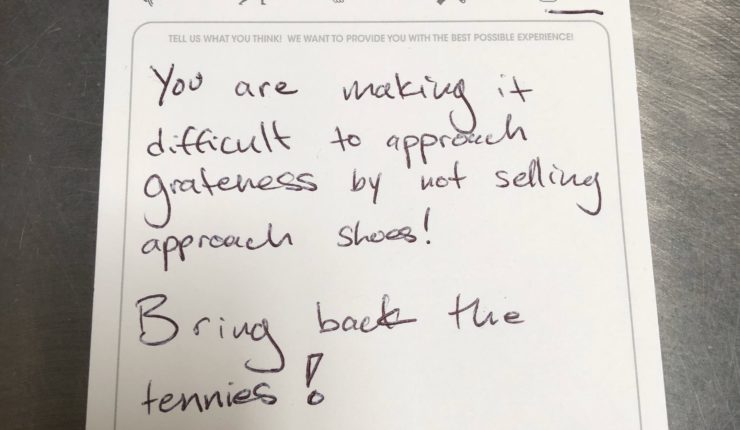 TELL US WHAT YOU THINK! WE WANT TO PROVIDE YOU WITH THE BEST POSSIBLE EXPERIENCE!
You are making it
difficult to approach
grateness by not selling
approach shoes!
Bring back the
tennies!